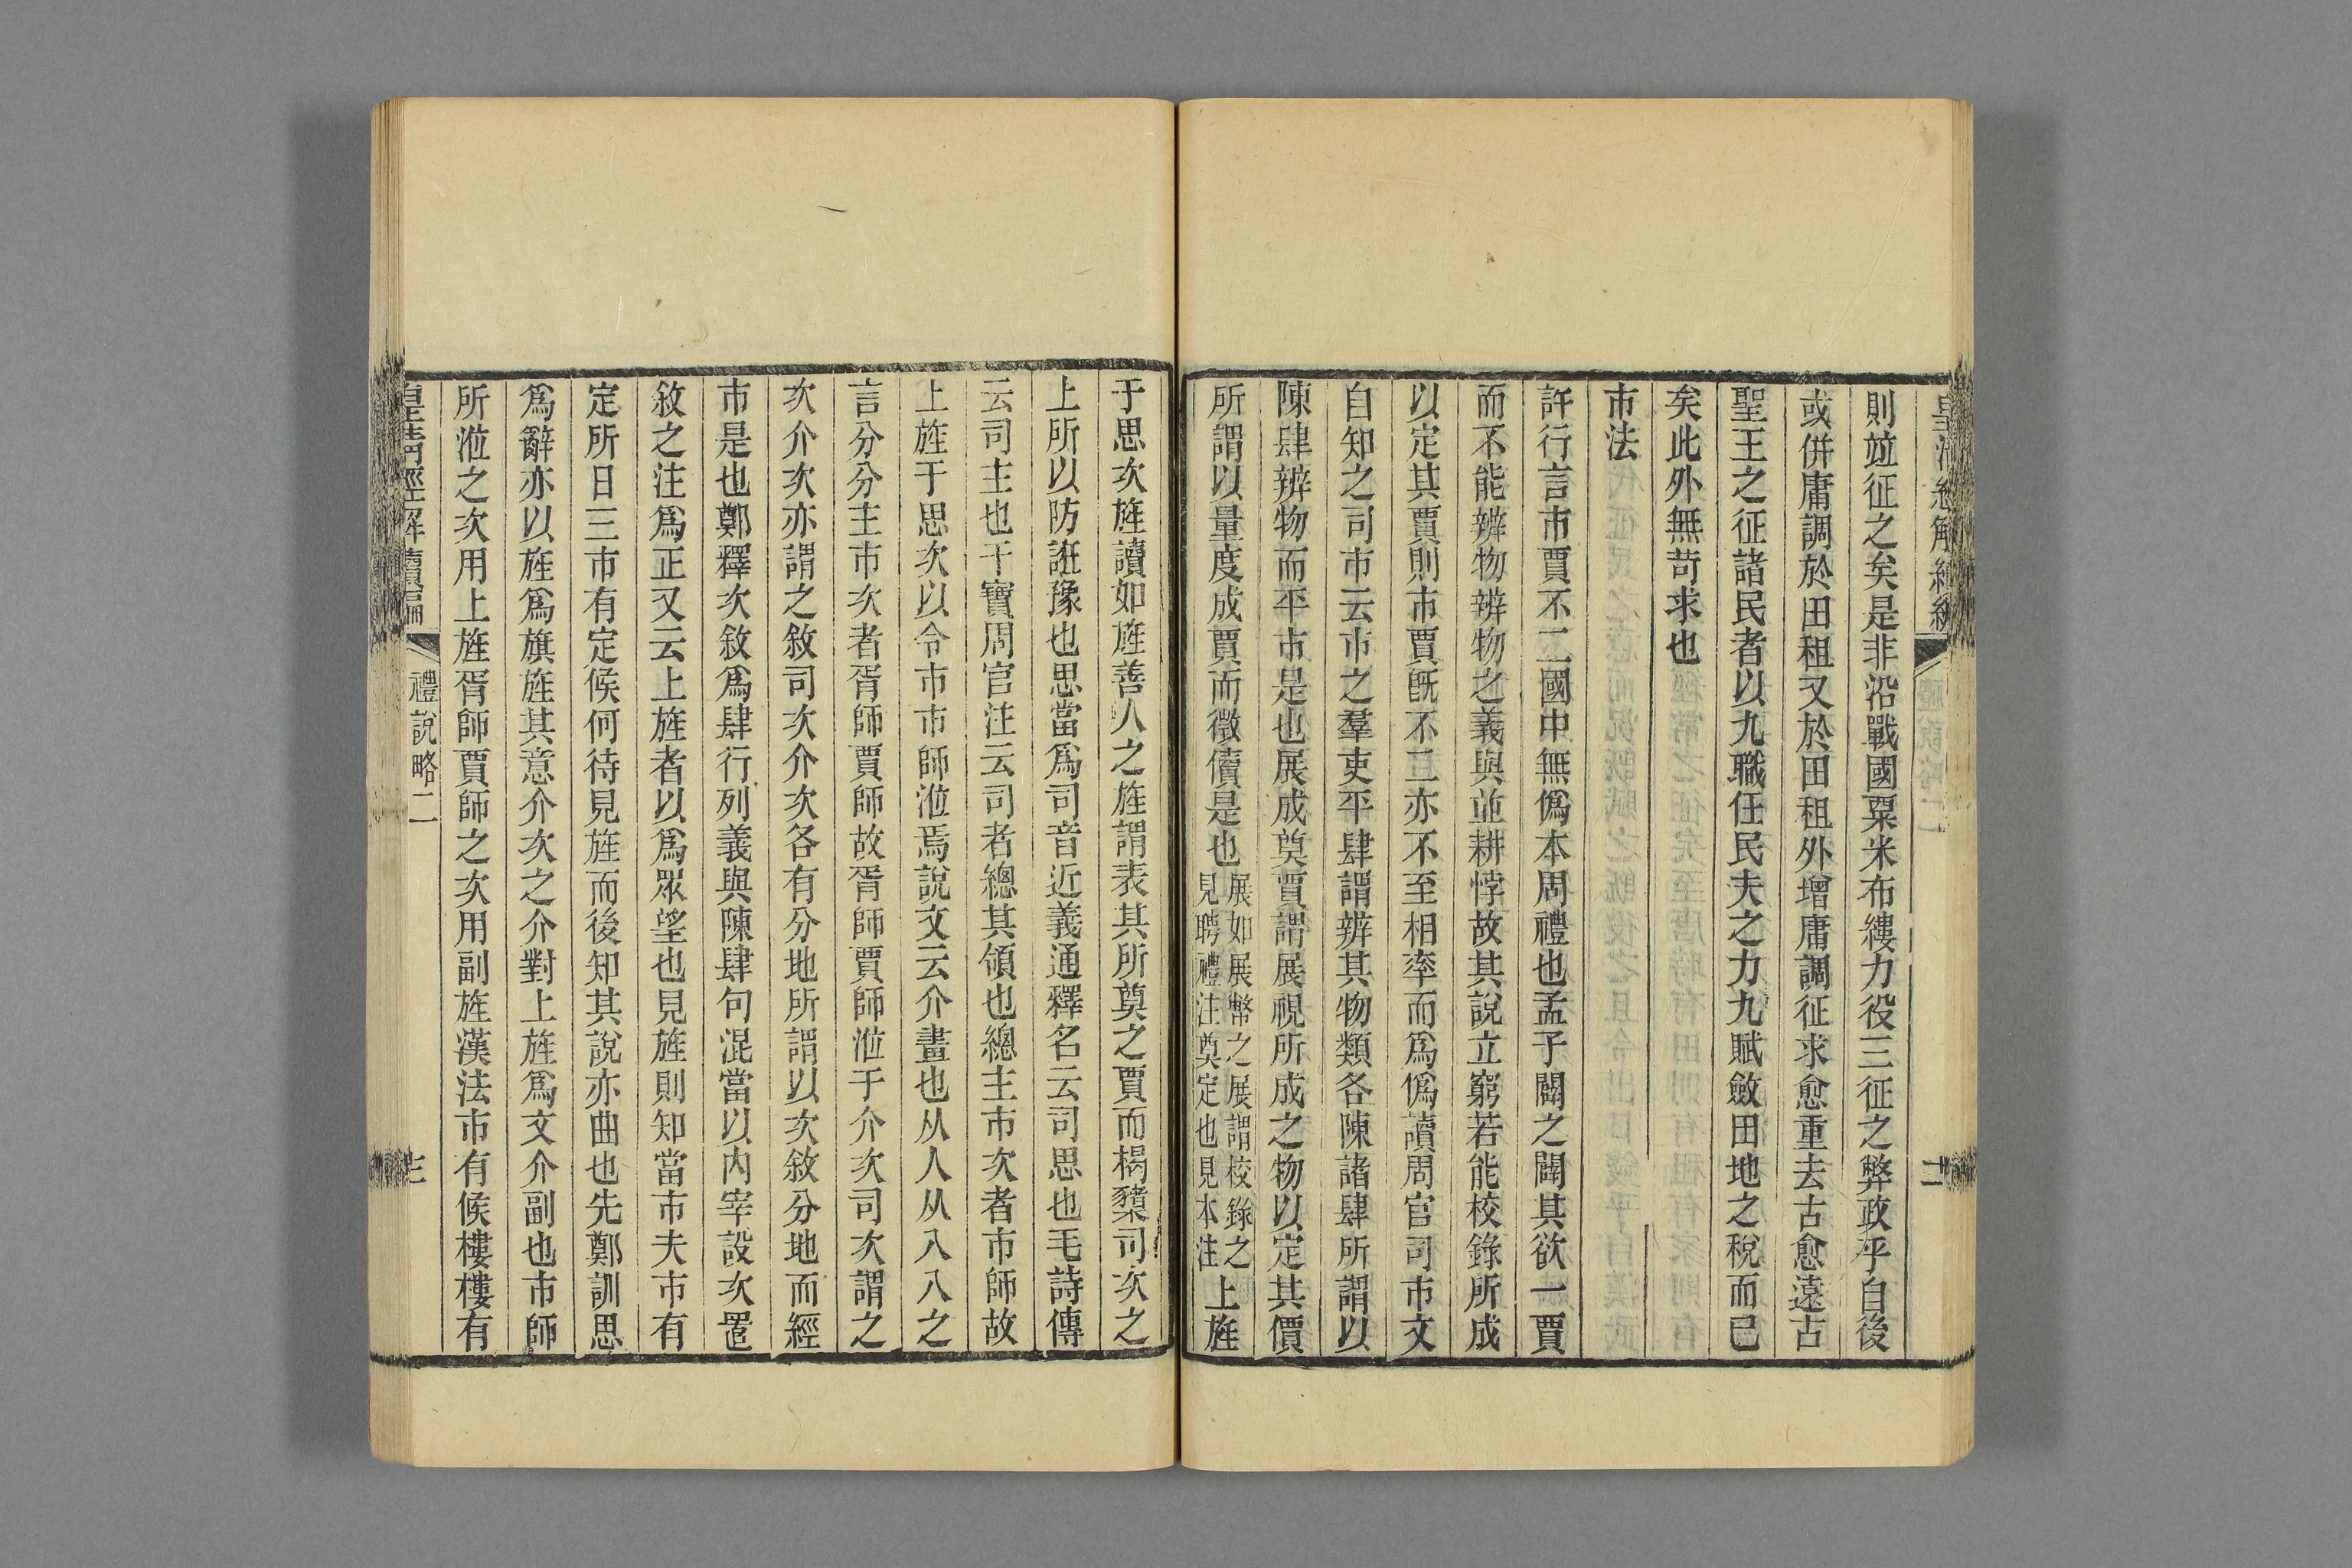 則竝征之矣是非沿戰國粟米布縷力役三征之弊政乎自後
或併庸調於田租又於田租外增庸調征求愈重去古愈遠古
聖王之征諸民者以九職任民夫之力九賦斂田地之稅而已
矣此外無苛求也
市法
許行言市賈不二國中無僞本周禮也孟子闢之闢其欲一賈
而不能辨物辨物之義與並耕悖故其說立窮若能校錄所成
以定其賈則市賈旣不二亦不至相率而爲僞讀周官司市文
自知之司市云市之羣吏平肆謂辨其物類各陳諸肆所謂以
陳肆辨物而平市是也展成奠賈謂展視所成之物以定其價
所謂以量度成賈而徵儥是也展如展幣之展謂校錄之見聘禮注奠定也見本注上旌
于思次旌讀如旌善人之旌謂表其所奠之賈而楬櫫司次之
上所以防誑豫也思當爲司音近義通釋名云司思也毛詩傳
云司主也干寶周官注云司者總其領也總主市次者市師故
上旌于思次以令市市師涖焉說文云介畫也从人从八八之
言分分主市次者胥師賈師故胥師賈師涖于介次司次謂之
次介次亦謂之敘司次介次各有分地所謂以次敘分地而經
市是也鄭釋次敘爲肆行列義與陳肆句混當以內宰設次置
敘之注爲正又云上旌者以爲眾望也見旌則知當市夫市有
定所日三市有定候何待見旌而後知其說亦曲也先鄭訓思
爲辭亦以旌爲旗旌其意介次之介對上旌爲文介副也市師
所涖之次用上旌胥師賈師之次用副旌漢法市有候樓樓有
皇清經解續編
禮說略二